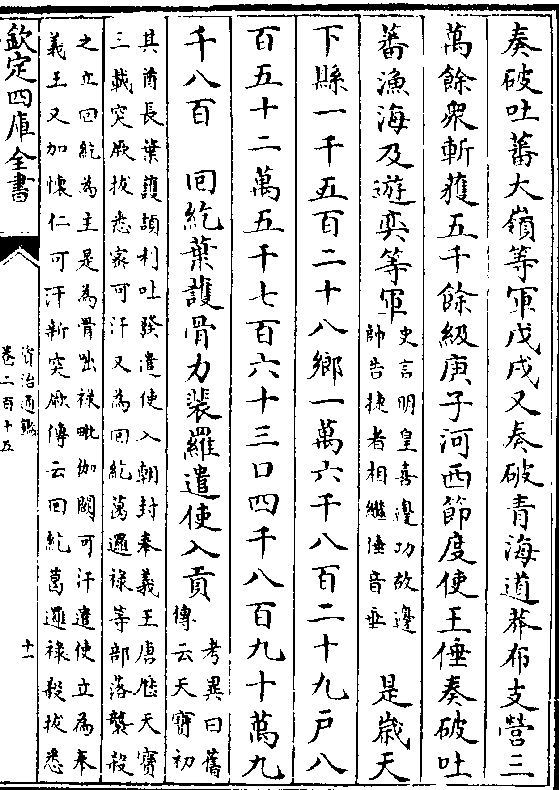 奏破吐蕃大嶺等軍戊戌又奏破青海道莽布支營三
萬餘衆斬獲五千餘級庚子河西節度使王倕奏破吐
蕃漁海及遊奕等軍史言明皇喜邊功故邊帥告捷者相繼倕音垂 是歲天
下縣一千五百二十八鄉一萬六千八百二十九戶八
百五十二萬五千七百六十三口四千八百九十萬九
千八百 回紇葉護骨力裴羅遣使入貢考異曰舊傳云天寶初
其酋長葉護頡利吐發遣使入朝封奉義王唐歴天寶
三載突厥拔悉宻可汗又為回紇葛邏禄等部落襲殺
之立回紇為主是為骨咄禄毗伽闕可汗遣使立為奉
義王又加懷仁可汗新突厥傳云回紇葛邏禄殺拔悉
欽定四庫全書
資治通鑑
卷二百十五
十一